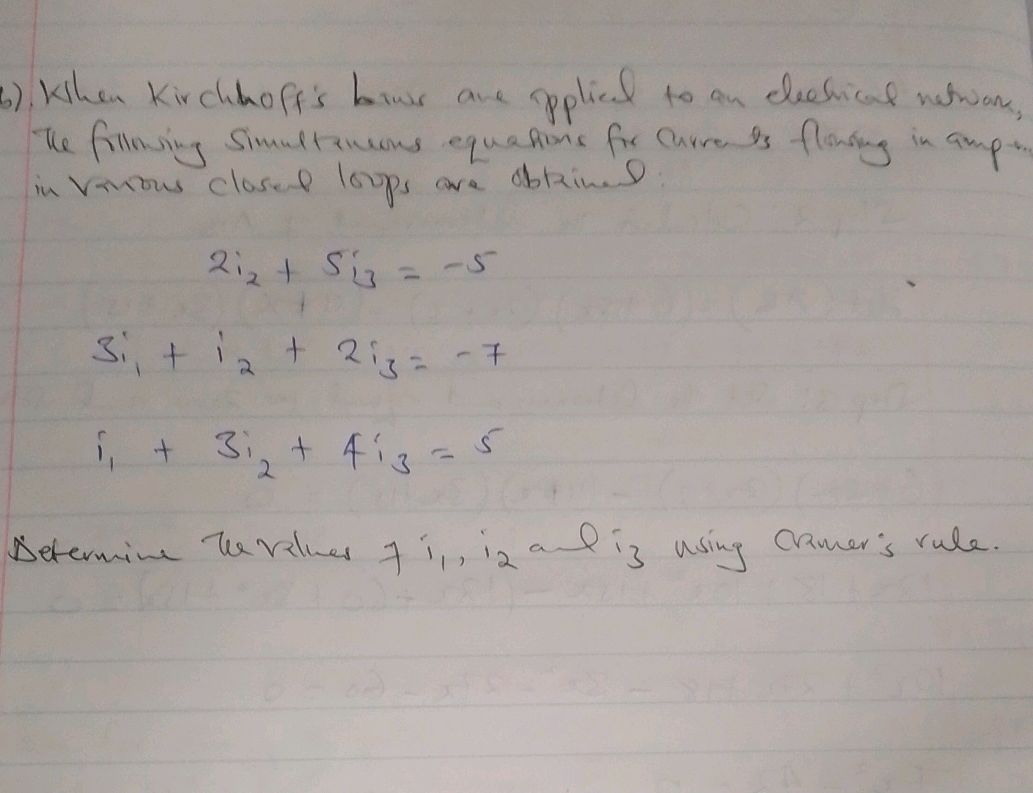 b). When Kirchhoff's laws are applied to an electrical network,
the following simultaneous equations for currents flowing in amp
in various closed loops are obtained:
2i₂ + 5i₃ = -5
3i₁ + i₂ + 2i₃ = -7
i₁ + 3i₂ + 4i₃ = 5
Determine the values of i₁, i₂ and i₃ using Cramer's rule.